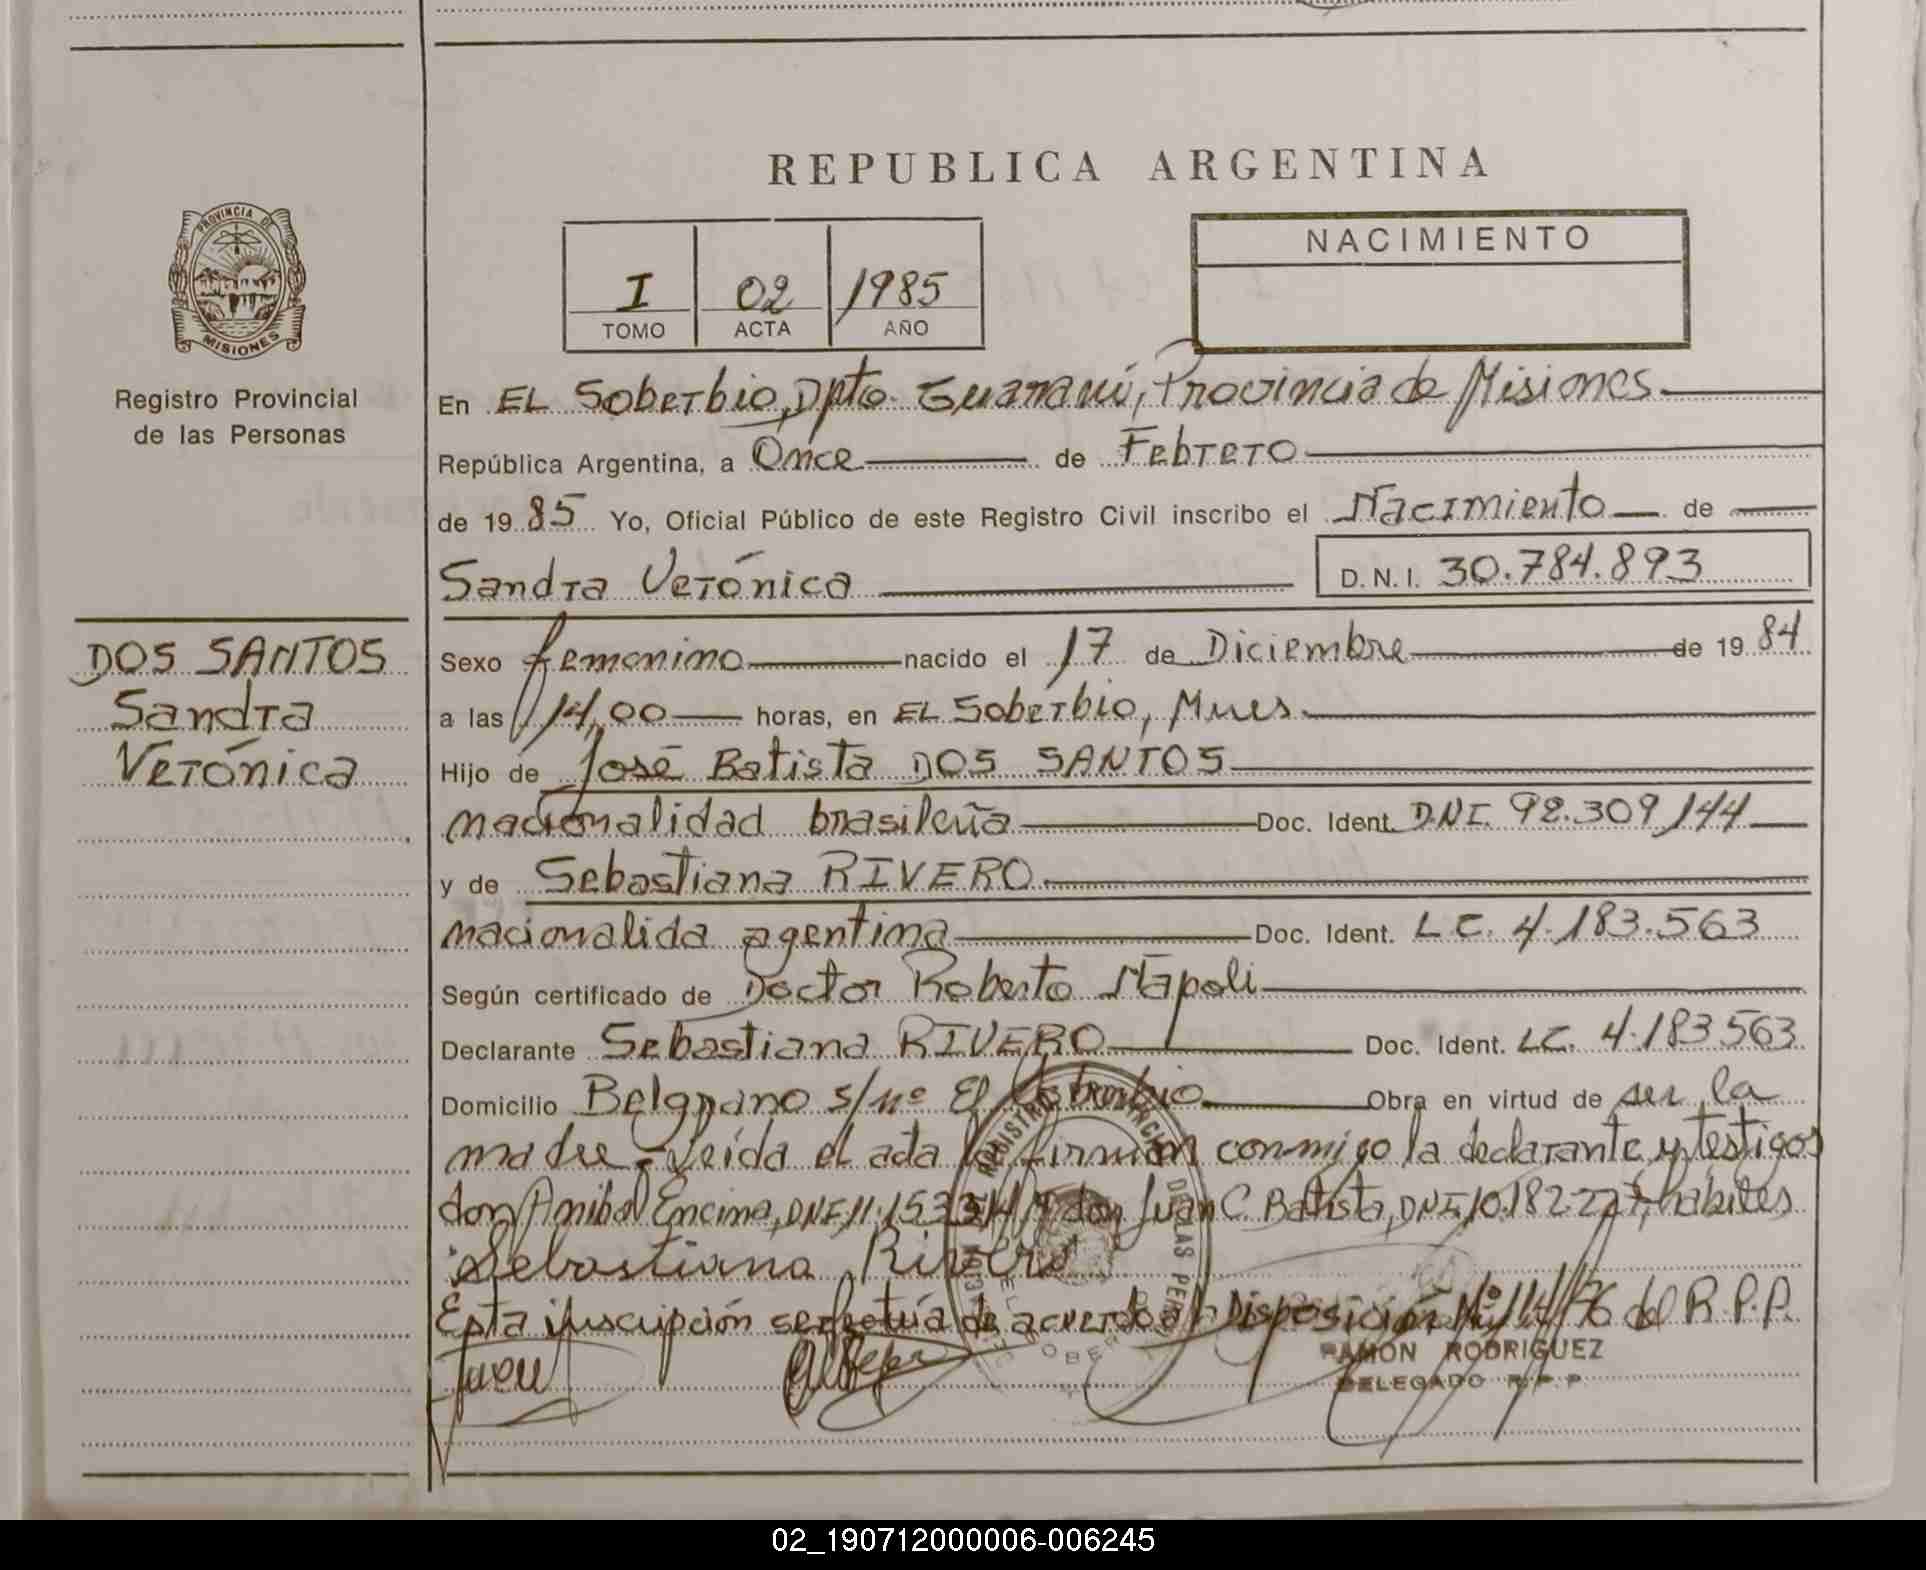 REPUBLICA ARGENTINA
PROVINCIA DE
MISIONES
Registro Provincial
de las Personas
I 02 1985
TOMO ACTA AÑO
NACIMIENTO
En EL Soberbio, Dpto. Guaraní, Provincia de Misiones
República Argentina, a Once de Febrero
de 19 85 Yo, Oficial Público de este Registro Civil inscribo el Nacimiento de
Sandra Verónica D.N.I. 30.784.893
DOS SANTOS
Sandra
Verónica
Sexo femenino nacido el 17 de Diciembre de 19 84
a las 14,00 horas, en EL Soberbio, Mnes.
Hijo de José Batista DOS SANTOS
nacionalidad brasileña Doc. Ident. DNI. 92.309,144
y de Sebastiana RIVERO
nacionalida agentina Doc. Ident. LC. 4.183.563
Según certificado de Doctor Roberto Napoli
Declarante Sebastiana RIVERO Doc. Ident. LC. 4.183563
Domicilio Belgrano s/nº El Soberbio Obra en virtud de ser la
madre - Leída el acta la firman conmigo la declarante y testigos
don Anibal Encina, DNI 11. y don Juan C. Batista, DNI.10.182.227, habiles
Sebastiana Rivero
Esta inscripción se efectúa de acuerdo a Disposición Nº 114/76 del R.P.P.
RAMON RODRIGUEZ
DELEGADO R.P.P.
02_190712000006-006245